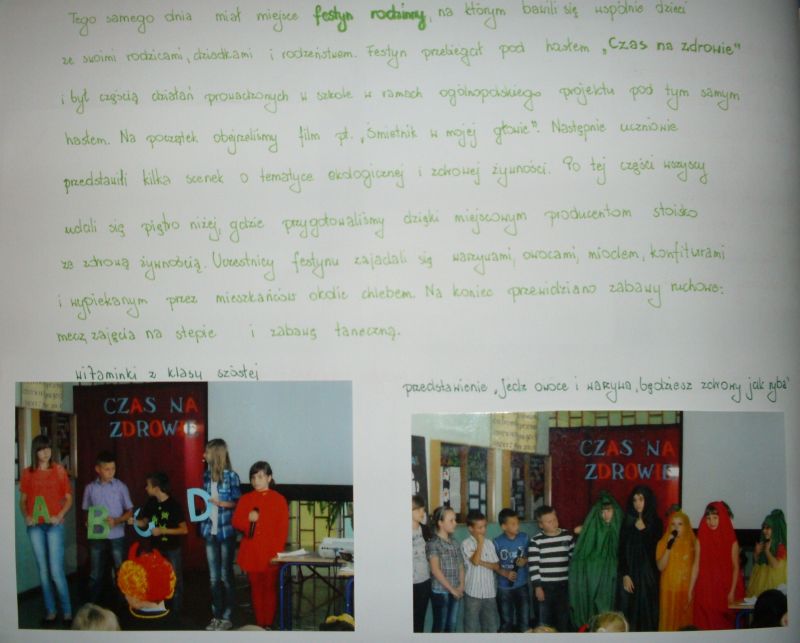 Tego samego dnia miał miejsce festyn rodzinny, na którym bawili się wspólnie dzieci
ze swoimi rodzicami, dziadkami i rodzeństwem. Festyn przebiegał pod hasłem „Czas na zdrowie"
i był częścią działań prowadzonych w szkole w ramach ogólnopolskiego projektu pod tym samym
hasłem. Na początek obejrzeliśmy film pt. „Śmietnik w mojej głowie". Następnie uczniowie
przedstawili kilka scenek o tematyce ekologicznej i zdrowej żywności. Po tej części wszyscy
udali się piętro niżej, gdzie przygotowaliśmy dzięki miejscowym producentom stoisko
ze zdrową żywnością. Uczestnicy festynu zajadali się warzywami, owocami, miodem, konfiturami
i wypiekanym przez mieszkańców okolic chlebem. Na koniec przewidziano zabawy ruchowe:
mecz, zajęcia na stepie i zabawę taneczną.
witaminki z klasy szóstej
przedstawienie „Jedz owoce i warzywa, będziesz zdrowy jak ryba"
CZAS NA
ZDROWIE
A B C D
CZAS NA
ZDROWIE